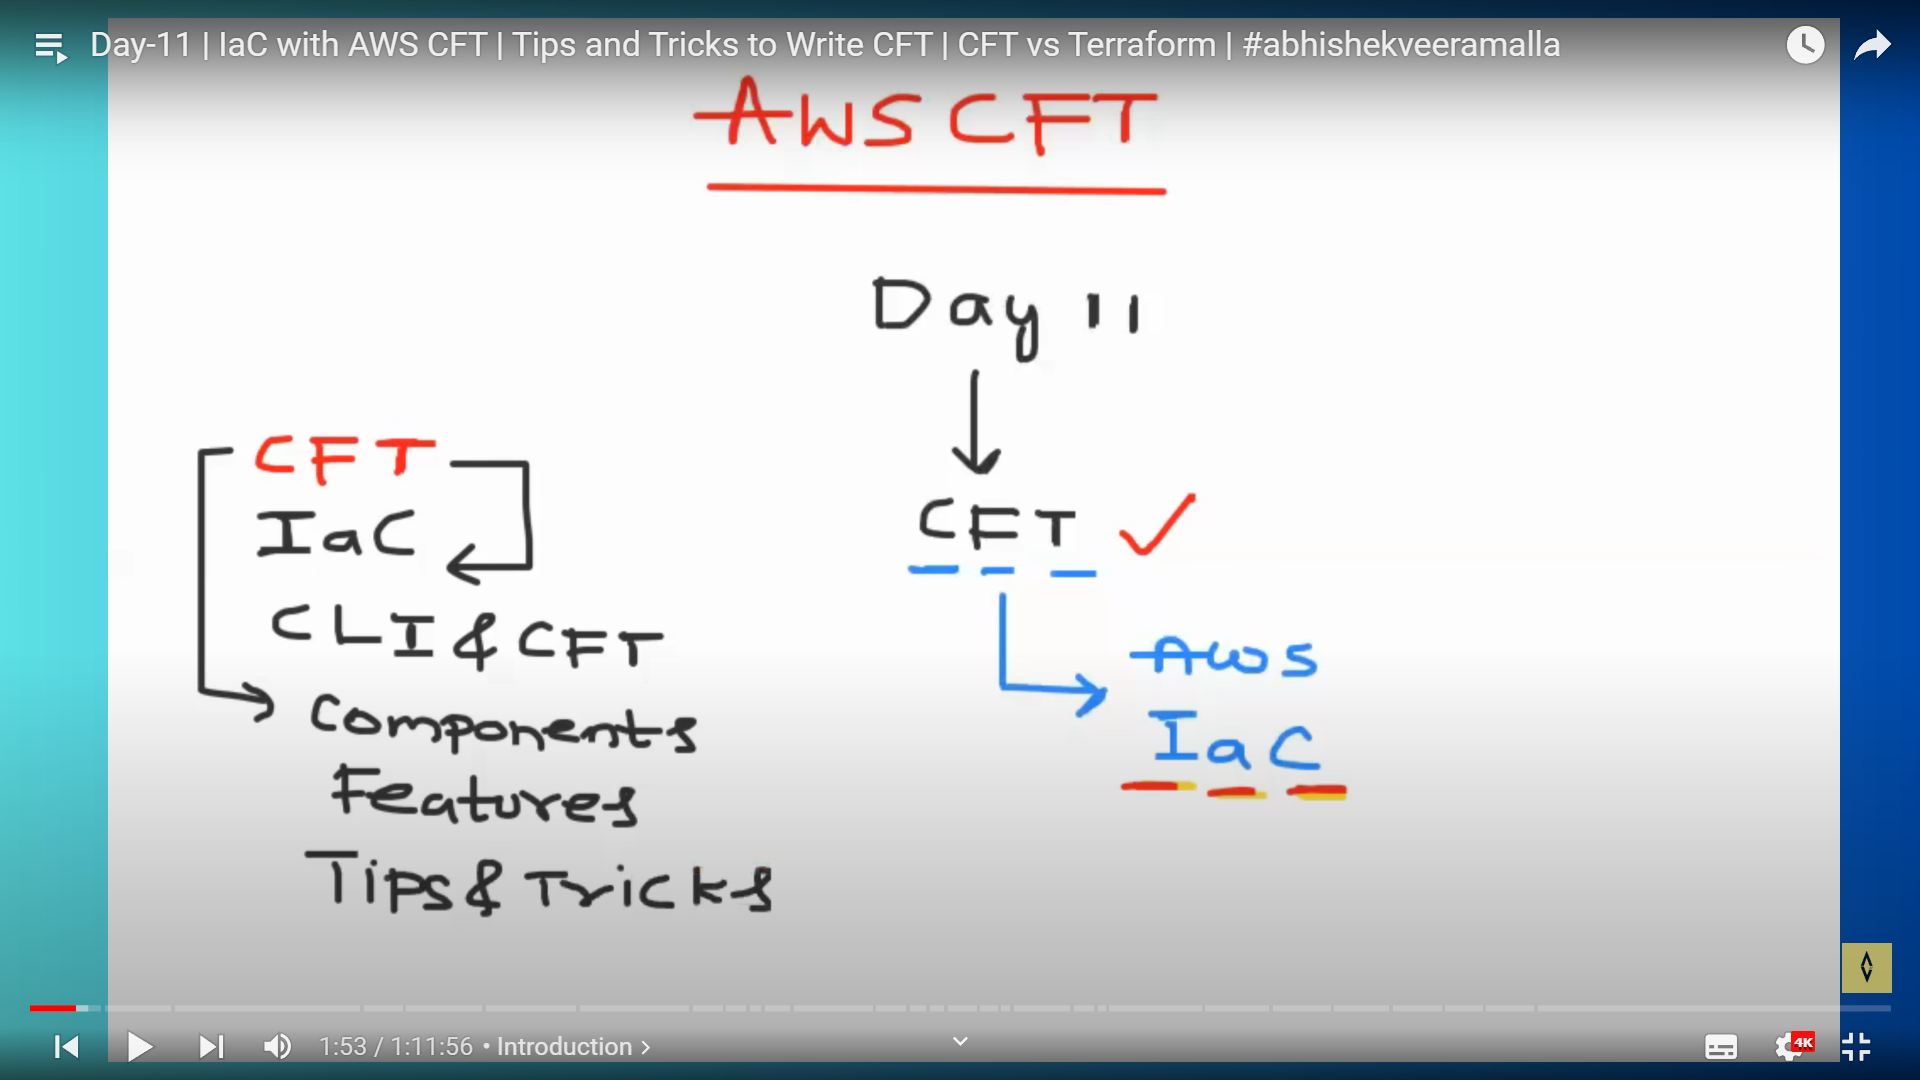 Day-11 | IaC with AWS CFT | Tips and Tricks to Write CFT | CFT vs Terraform | #abhishekveeramalla
AWS CFT
Day 11
CFT
AWS
IaC
CFT
IaC
CLI & CFT
Components
Features
Tips & Tricks
1:53 / 1:11:56 • Introduction
4K